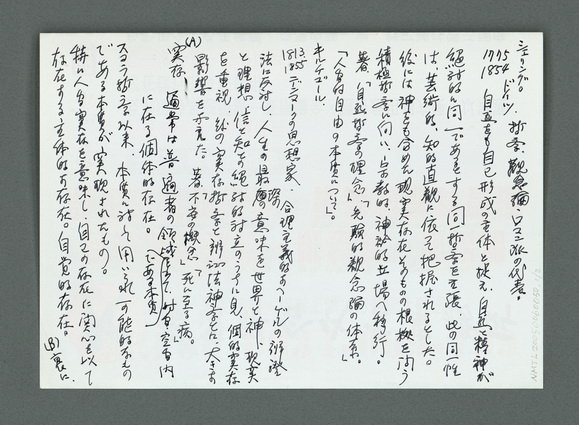 シェリング。
1775
1854 ドイツ 哲学、観念論ロマン派の代表。
自然をも自己形成の主体と捉え、自然と精神が
絶対的に同一であるとする同一哲学を主張、此の同一性
は、芸術的、知的直観に依って把握されるとした。
後には神をも含めた現実存在そのものの根拠を問う
積極哲学に向い、神秘的立場へ移行。
著、「自然哲学の理念」「先験的観念論の体系」
「人間的自由の本質について」。
キルケゴール、
1813
1855 デンマークの思想家、合理主義的なヘーゲルの弁証
法に反対し、人生の最深の意味を世界と神、現実
と理想、信と知との絶対的対立のうちに見、個的実存
を重視、後の実存哲学と弁証法神学とに大きな
影響を与えた。著「不安の概念」「死に至る病」
(A)
実存 通常は普遍者の領域 時空間内
に在る個体的存在。(である本質)
スコラ哲学以来、本質に対して用いられ可能的なもの
である本質が実現されたもの。
特に人間の実存を意味し、自己の存在に関心を以て
存在する主体的な存在。自覚的存在。
(B) 裏に、